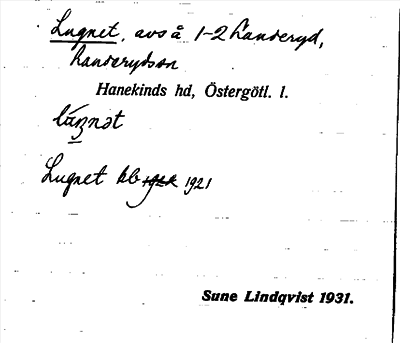 Lugnet, avs å 1-2 Landeryd,
Landeryds sn
Hanekinds hd, Östergötl. l.
Lugnet kb 1921
Sune Lindqvist 1931.